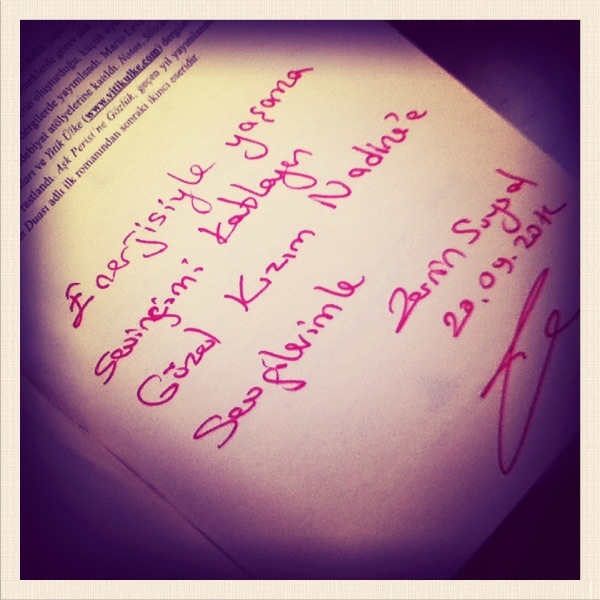 oluşturduğu, küçük
dergilerde yayımlandı. Mario Levi
edebiyat atölyelerine katıldı. Notos, Sözcü
ve Yitik Ülke (www.yitikulke.com) dergi
rastlandı. Aşk Perisi'ne Gözlük, geçen yıl yayımlanan
Duası adlı ilk romanından sonraki ikinci eseridir.
Enerjisiyle yaşama
Sevincimi katlayan
Güzel Kızım Nadine'e
Sevgilerimle
Zerrin Soysal
20.09.2011